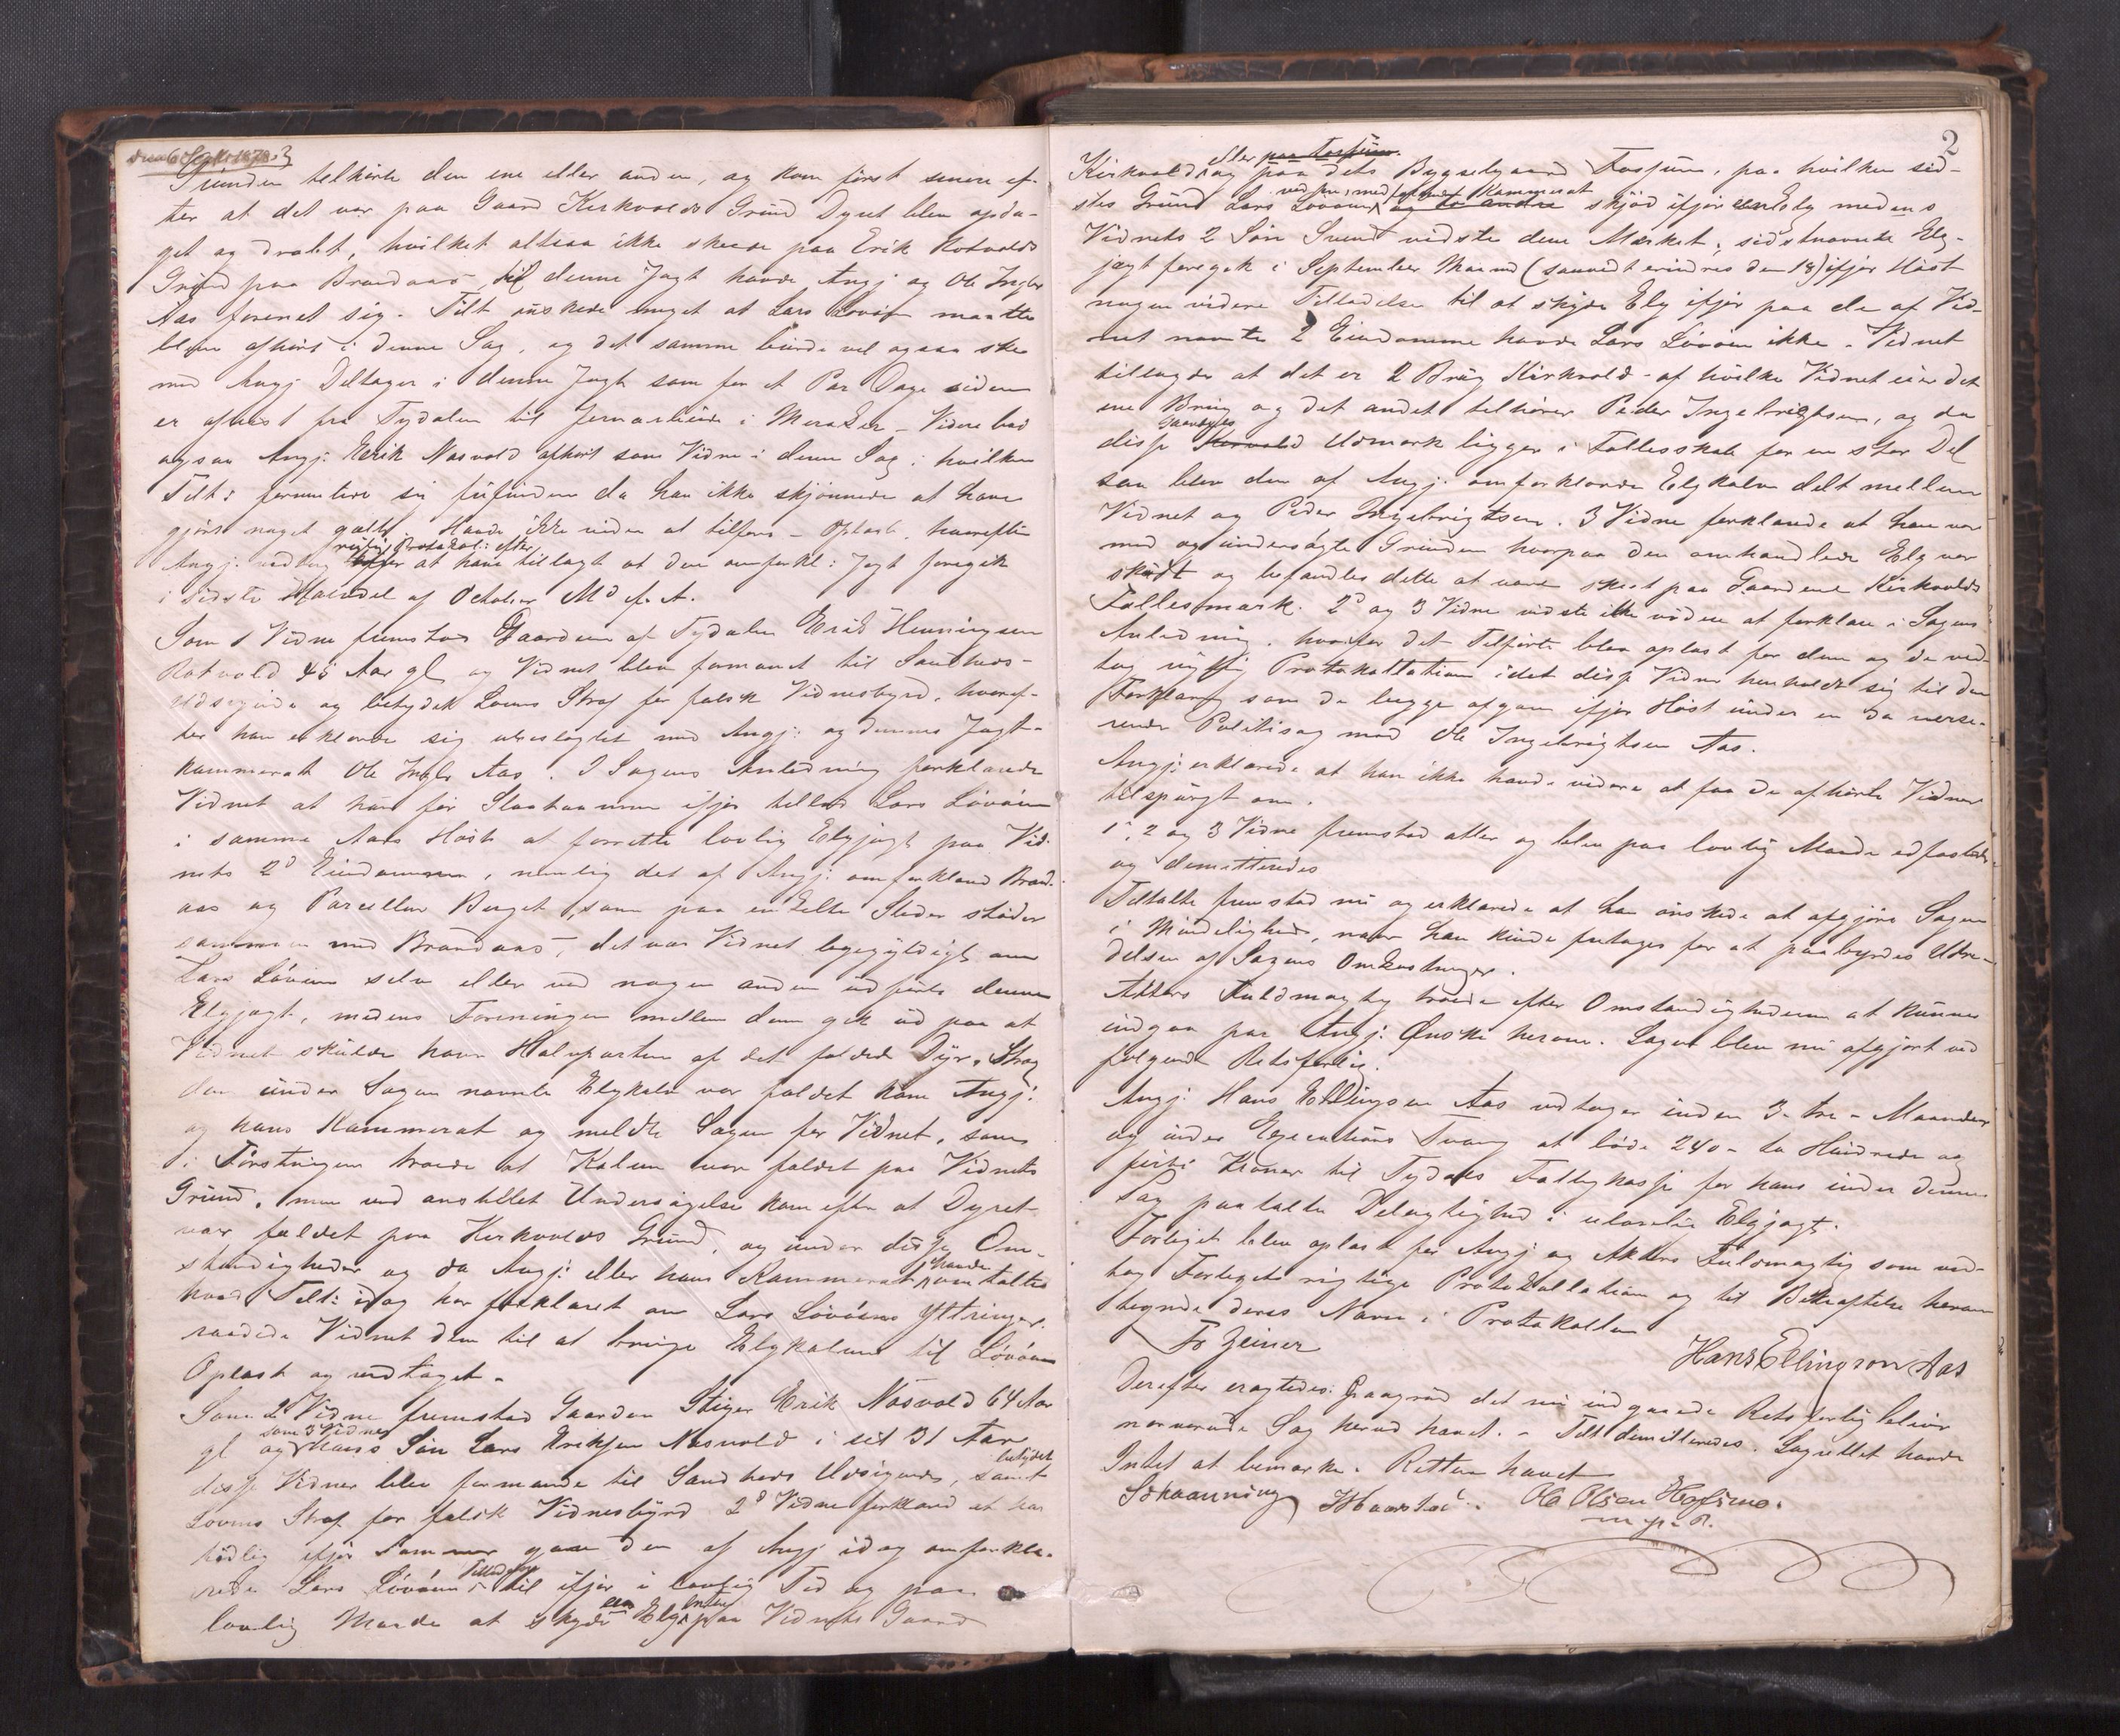 Grunden tilhørte den ene eller anden, og kom først senere ef-
ter at det var paa Gaard Kirkvolds Grund Dyret blev opda-
get og dræbt, hvilket altsaa ikke skeede paa Erik Rotvolds
Grund paa Brændaas, til denne Jagt havde Angj og Ole Ingbr
Aas forenet sig. Tilt ønskede meget at Lars Løvøen maatte
blive afhørt i denne Sag, og det samme burde vel ogsaa ske
med Angj Deltager i denne Jagt som for et Par Dage siden
er afreist fra Tydalen til Jernarbeide i Meraker – Videre bad
ogsaa Angj: Erik Næsvold afhørt som Vidne i denne Sag i hvilken
Tilt: formente sig frifunden da han ikke skjønnede at have
gjort noget galt. Havde ikke videre at tilføre – Oplæst, hvorefter
Angj. vedtog rigtig Protokol: efter at have tillagt at den omforkl: Jagt foregik
i sidste Halvdel af October Md f. A.
Som 1 Vidne fremstod Gaardmd af Tydalen Erik Henningsen
Rotvold 45 Aar gl og Vidnet blev formanet til Sandheds-
Udsigende og betydet Lovens Straf for falsk Vidnesbyrd, hvoref-
ter han erklærede sig ubeslægtet med Angj: og dennes Jagt-
kammerat Ole Ingbr Aas. I Sagens Anledning forklarede
Vidnet at han før Slaataannen ifjor tillod Lars Løvøen
i samme Aars Høst at forrette lovlig Elgjagt paa Vid-
nets 2de Eiendomme, nemlig det af Angj: omforklared Brænd-
aas og Parcellen Berget, som paa enkelte Steder støder
sammen med Brændaas, det var Vidnet ligegyldigt om
Lars Løvøen selv eller ved nogen anden udførte denne
Elgjagt, medens Foreningen mellem dem gik ud paa at
Vidnet skulde have Halvparten af det fældede Dyr. Strax
den under Sagen nævnte Elgkalv var fældet kom Angj:
og hans Kammerat og meldte Sagen for Vidnet, som
i Førstningen troede at Kalven var fældet paa Vidnets
Grund, men ved anstillet Undersøgelse kom efter at Dyret
var fældet paa Kirkvolds Grund, og under disse Om-
stændigheder og da Angj: eller hans Kammerat havde omtaltes
hvad Tilt: idag har forklaret om Lars Løvøens Yttringer
raadede Vidnet dem til at bringe Elgkalven til Løvøen
Oplæst og vedtaget.
Som 2 Vidne fremstod Gaardm Stiger Erik Næsvold 64 Aar
gl og som 3 Vidne hans Søn Lars Eriksen Næsvold i sit 31 Aar
disse Vidner blev formanede til Sandheds Udsigende, samt betydet
Lovens Straf for falsk Vidnesbyrd 2d Vidne forklared at han
tidlig ifjor Sommer gav den af Angj idag omforkla-
rede Lars Løvøen Tilladelse til ifjor i lovlig Tid og paa
lovlig Maade at skyde een Elg enten paa Vidnets Gaard
2
Kirkvold eller paa dets Bygselgaard Fossum, paa hvilken sid-
stes Grund Lars Løvøen og to andre skjød ifjor een Elg medens
Vidnets 2 Søn Svend vidste dem Mærket, sidstnævnte Elg-
jagt foregik i September Maaned (saavidt erindres den 18) ifjor Høst
nogen videre Tilladelse til at skyde Elg ifjor paa de af Vid-
net nævnte 2 Eiendomme havde Lars Løvøen ikke. Vidnet
tillagde at det er 2 Brug Kirkvold – af hvilke Vidnet eier det
ene Brug og det andet tilhører Peder Ingebrigtsen, og da
disse Gaardes Udmark ligger i Fællesskab for en stor Del
saa blev den af Angj. omforklarede Elgkalv delt mellem
Vidnet og Peder Ingebrigtsen. 3 Vidne forklarede at han var
med og undersøgte Grunden hvorpaa den omhandlede Elg var
skudt og befandtes dette at være skeet paa Gaardene Kirkvolds
Fællesmark. 2d og 3 Vidne vidste ikke videre at forklare i Sagens
Anledning, hvorfor det Tilførte blev oplæst for dem og de ved-
tog rigtig Protokollation idet disse Vidner henholdt sig til den
Forklaring som de begge afgav ifjor Høst under en da verse-
rende Politisag mod Ole Ingebrigtsen Aas.
Angj: erklærede at han ikke havde videre at faa de afhørte Vidner
tilspurgt om.
1, 2 og 3 Vidne fremstod atter og blev paa lovlig Maade edfæstede
og demitteredes
Tiltalte fremstod nu og erklærede at han ønskede at afgjøre Sagen
i Mindelighed, naar han kunde fritages for at paabyrdes Udre-
delsen af Sagens Omkostninger.
Aktors Fuldmægtig troede efter Omstændighederne at kunne
indgaa paa Angj: Ønske herom. Sagen blev nu afgjort ved
følgende Retsforlig.
Angj: Hans Ellingsen Aas vedtager inden 3 – tre – Maaneder
og under Executions Tvang at bøde 240 – to Hundrede og
førti Kroner til Tydals Fattigkasse for hans under denne
Sag paatalte Delagtighed i ulovlig Elgjagt.
Forliget blev oplæst for Angj og Aktors Fuldmægtig som ved-
tog Forligets rigtige Protokollation og til Bekræftelse herom
tegnede deres Navne i Protokollen
Fr Zeiner
Hans Ellingson Aas
Derefter eragtedes: Paagrund det nu indgaaede Retsforlig bliver
nærværende Sag herved hævet. – Tilt demitteredes. Lagrettet havde
Intet at bemærke. Retten hævet
Schaanning
Ole Olsen
m. p. P.